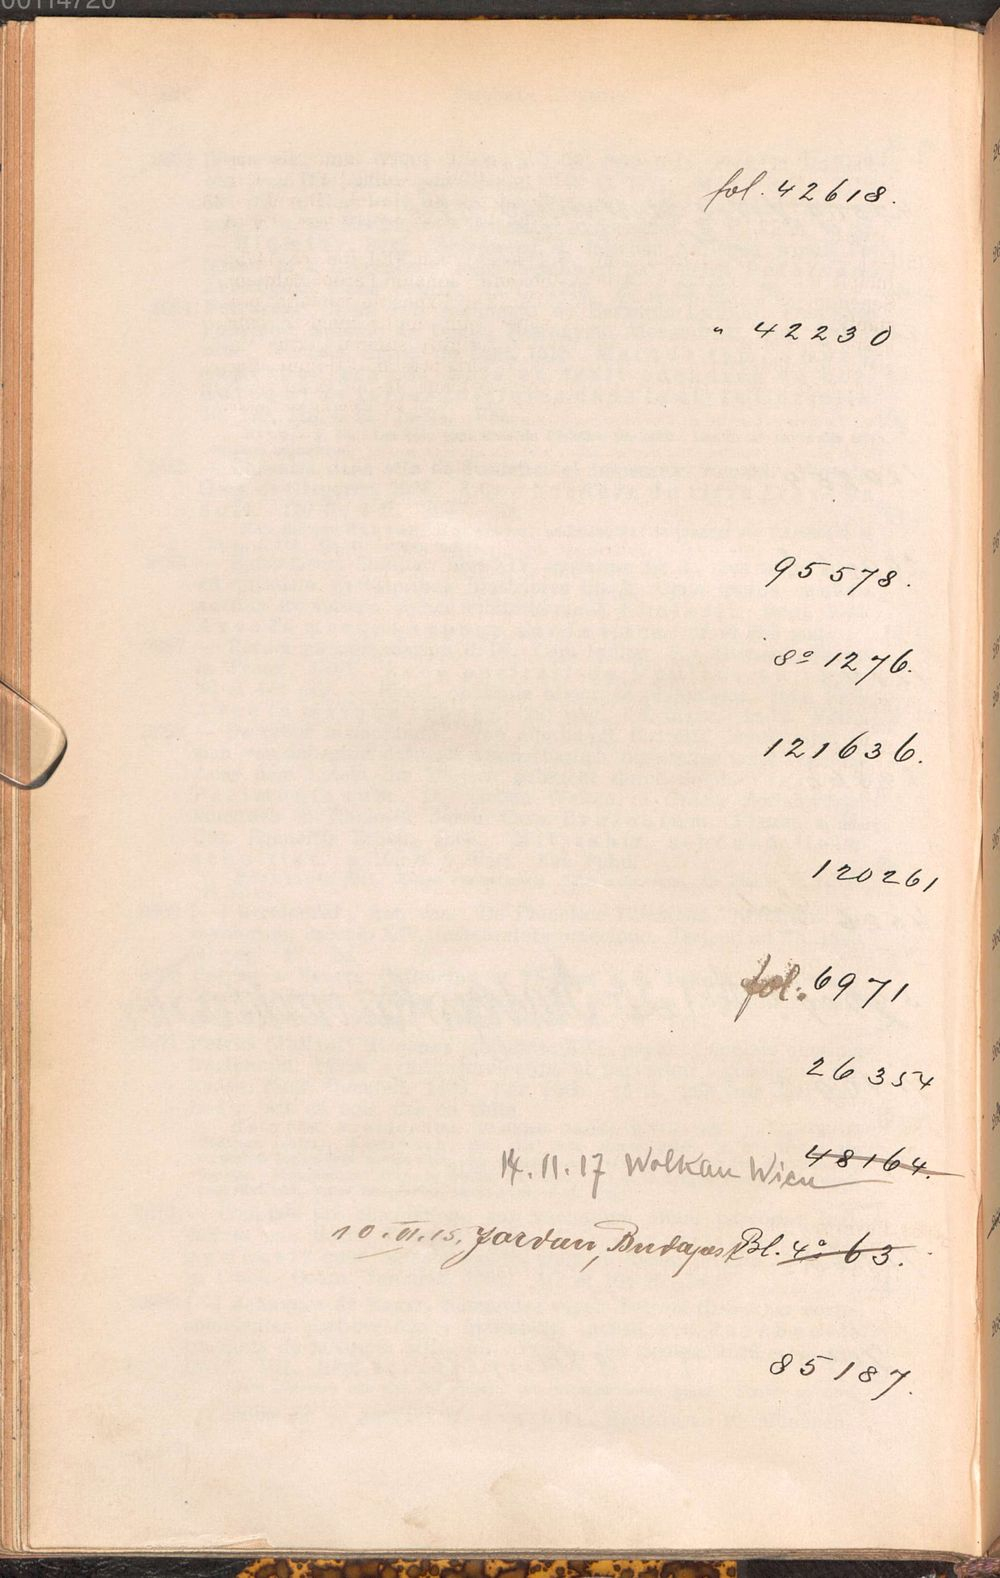 00114720
fol. 42618.
" 42230
95578.
8º 1276.
121636.
120261
fol. 6971
26354
48164.
14.11.17 Wolkan Wien
10.VI.15. Jordan, Budapest Bl. 4º 63.
85187.